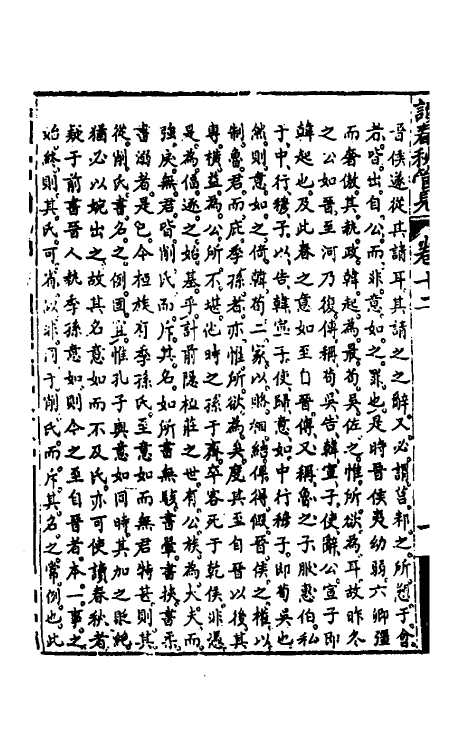 讀春秋管見 卷十二
晉侯遂從其請耳其請之之辭又必謂莒邾之所愬于會
者皆出自公而非意如之罪也是時晉侯夷幼弱六卿彊
而奢傲其執政韓起為最荀吳佐之惟所欲為耳故昨冬
之公如晉至河乃復傳稱荀吳告韓宣子使辭公宣子即
韓起也及此春之意如至自晉傳又稱魯之子服惠伯私
于中行穆子以告韓宣子使歸意如中行穆子即荀吳也
然則意如之倚韓荀二家以賂綢結得假晉侯之權以
制魯君而庇季孫者亦惟所欲為矣度其至自晉以後其
專橫益為公所不堪他時之孫于齊卒客死于乾侯非慿
是為偪遂之始基乎計前隱桓莊之世有公族為大夫而
強戾無君皆削氏而斥其名如所書無駭書翬書挾書柔
書溺者是巳今桓族有季孫氏至意如而無君特甚則其
從削氏書名之例固宜惟孔子與意如同時其加之貶絕
猶必以婉出之故其名意如而不及氏亦可使讀春秋者
疑于前書晉人執季孫意如則今之至自晉者本一事之
始終則其氏可省以非同于削氏而斥其名之常例也此